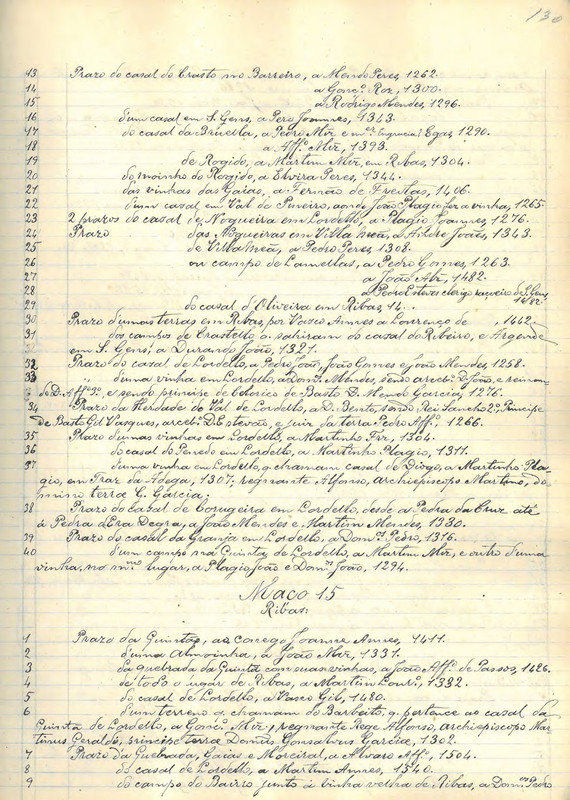 130
13 Prazo do casal do Crasto no Barreiro, a Mendo Peres, 1262.
14 a Gonç.º Roz, 1300.
15 a Rodrigo Mendes, 1296.
16 d'um casal em S. Gens, a Pero Joannes, 1343.
17 do casal da a Pedro Miz e m.er Engracia Egas, 1290.
18 a Aff.º Miz, 1393.
19 de Rogido, a Martim Miz, em Ribas, 1304.
20 do moinho do Rogido, a Elvira Peres, 1344.
21 das vinhas das Gaias, a Fernão de Freitas, 1406.
22 d'um casal em Val do Pineiro, aonde João Plagio fez a vinha, 1265
23 2 prazos do casal de Nogueira em Lordello, a Plagio Joannes, 1276.
24 Prazo das Nogueiras em Villa Meã, a João, 1343.
25 de Villa Meã, a Pedro Peres, 1308.
26 ou campo de Lamellas, a Pedro Gomes, 1263.
27 a João Alz, 1482.
28 a Pedro Esteves clerigo raçoeiro de S. Gens 1482.
29 do casal d'Oliveira em Ribas, 14..
30 Prazo d'umas terras em Ribas, por Vasco Annes a Lourenço de , 1442
31 dos campos de Crastello q. sahiram do casal do Ribeiro, e
em S. Gens, a Durando João, 1321.
32 Prazo do casal de Lordello, a Pedro João, João Gomes e João Mendes, 1258.
33 " d'uma vinha em Lordello, a Dom.os Mendes, sendo arceb.º D. João, e reinan-
do D. Aff.º 3º, e sendo principe de Celorico de Basto D. Mendo Garcia, 1276.
34 Prazo da Herdade de Val de Lordello, a D. Bento, sendo Rei Sancho 2º, Principe
de Basto Gil Vasques, arceb.º D. Estevão, e juiz da terra Pedro Aff.º, 1266.
35 Prazo d'umas vinhas em Lordello, a Martinho Frz, 1304.
36 do casal do Penedo em Lordello, a Martinho Plagio, 1311.
37 d'uma vinha em Lordello, q. chamam casal de Diogo, a Martinho Pla-
gio, em Traz da Adega, 1307, regnante Alfonso, archiepiscopo Martino, do-
mino terra G. Garcia.
38 Prazo do casal de Corugeira em Lordello, desde a Pedra da Cruz até
á Pedra d'Era Negra, a João Mendes e Martim Mendes, 1330.
39 Prazo do casal da Granja em Lordello, a Dom.os Pedro, 1316.
40 d'um campo na Quinta de Lordello, a Martim Miz, e outro d'uma
vinha, no m.mo lugar, a Plagio João e Dom.os João, 1294.
Maço 15
Ribas:
1 Prazo da Quintã, ao conego Joanne Annes, 1411.
2 d'uma Almoinha, a João Miz, 1331.
3 da quebrada da Quintã com suas vinhas, a João Aff.º de Passos, 1426.
4 de todo o lugar de Ribas, a Martim Lour.º, 1332.
5 do casal de Lordello, a Vasco Gil, 1480.
6 d'um terreno q. chamam do Barbaito, q. pertence ao casal da
Quinta de Lordello, a Gonç.º Miz, regnante Rege Alfonso, archiepiscopo Mar-
tinus Geraldi, principe terra Domnus Gonsalvus Garcia, 1302.
7 Prazo da Quebrada, Gaias e Morciral, a Alvaro Aff.º, 1504.
8 do casal de Lordello, a Martim Annes, 1540.
9 do campo do Bairro junto á vinha velha de Ribas, a Dom.os Pedro